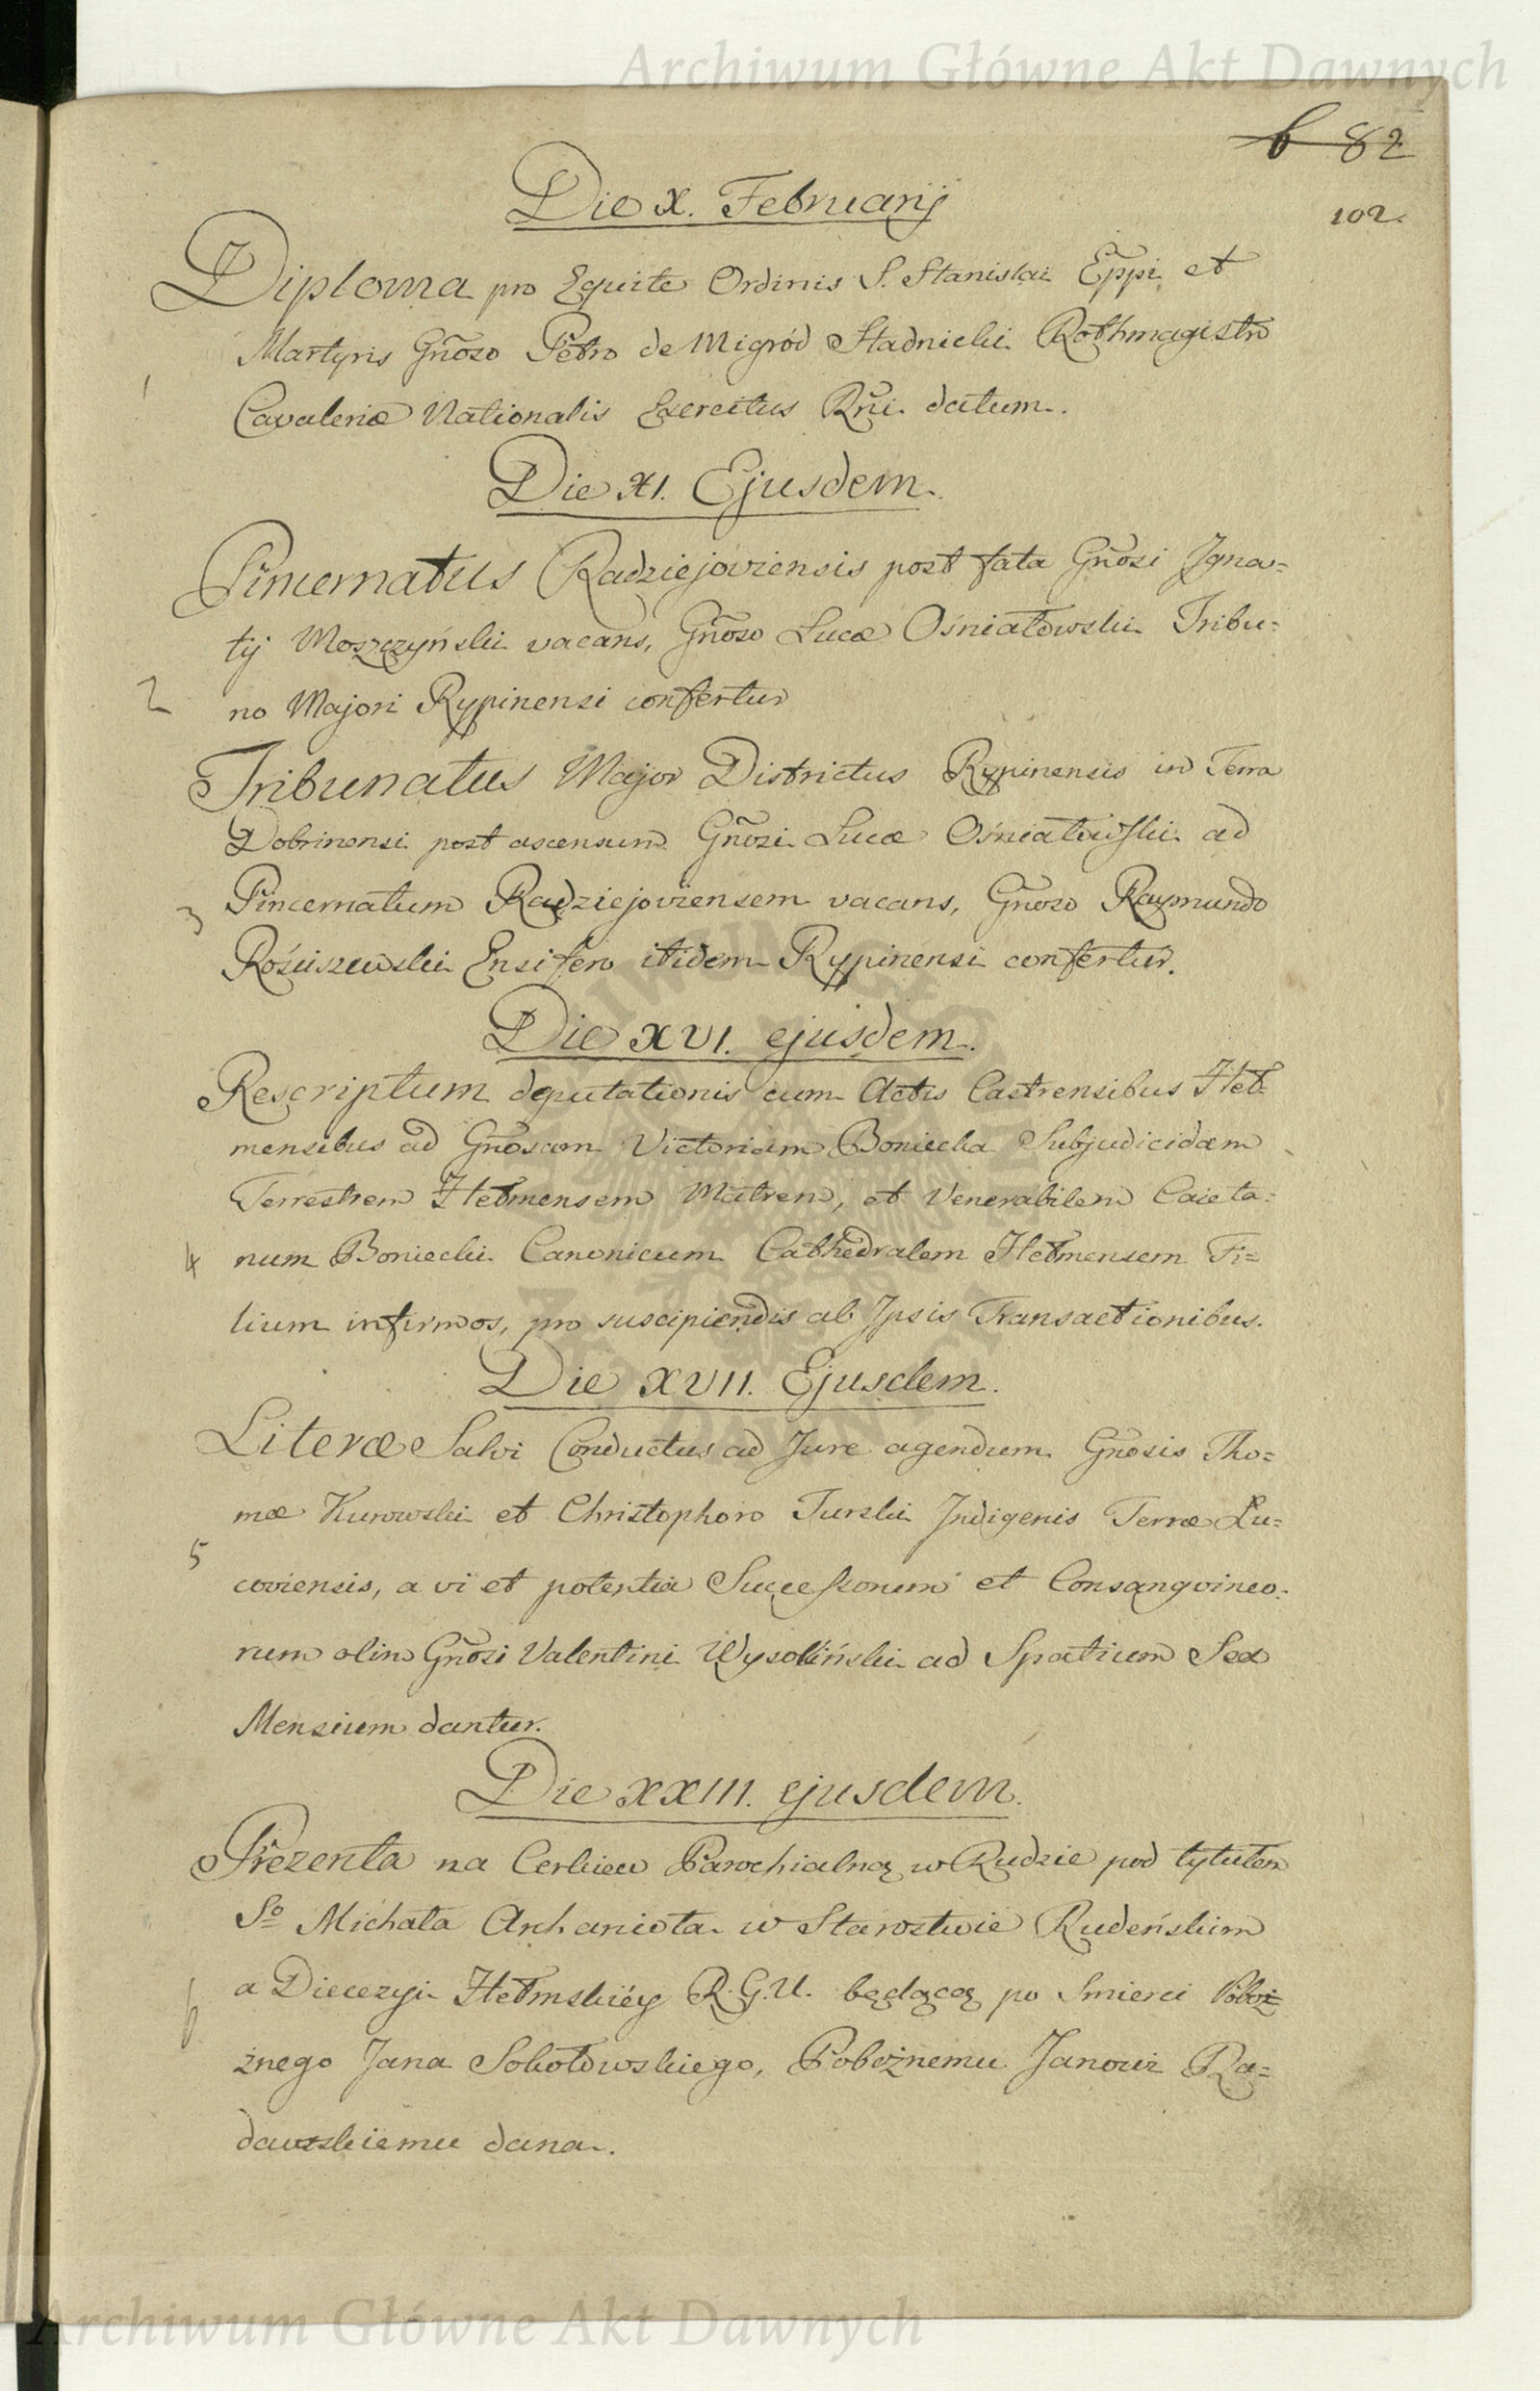 Archiwum Główne Akt Dawnych
6 82
102.
Die X. Februarij
Diploma pro Equite Ordinis S. Stanislai Ep̃pi et
Martyris Gñoso Petro de Migród Stadnicki Rothmagistro
1
Cavaleriæ Nationalis Exercitus Rñi. datum.
Die XI. Ejusdem.
Pincernatus Radziejoviensis post fata Gñosi Igna=
tij Moszczyński vacans, Gñoso Lucæ Ośniałowski Tribu=
2
no Majori Rypinensi confertur
Tribunatus Major Districtus Rypinensis in Terra
Dobrinensi post ascensum Gñosi Lucæ Ośniałowski ad
3
Pincernatum Radziejoviensem vacans, Gñoso Raymundo
Rościszewski Ensifero itidem Rypinensi confertur.
Die XVI. ejusdem.
Rescriptum deputationis cum Actis Castrensibus Hełmensibus
mensibus ad Gñosam Victoriam Boniecka Subjudicidam
Terrestrem Hełmensem Matrem, et Venerabilem Caieta=
4
num Boniecki Canonicum Cathedralem Hełmensem Fi=
lium infirmos, pro suscipiendis ab Ipsis Transactionibus.
Die XVII. Ejusdem.
Literæ Salvi Conductus ad Jure agendum Gñosis Tho=
mæ Kurowski et Christophoro Turski Indigenis Terræ Lu=
5
coviensis, a vi et potentia Successorum et Consangvineo=
rum olim Gñosi Valentini Wysokiński ad Spatium Sex
Mensium dantur.
Die XXIII. ejusdem.
Prezenta na Cerkiew Parochialną w Rudzie pod tytułem
So Michała Archanioła w Starostwie Rudeńskim
6
a Diecezyi Hełmskiéy R. G. U. będącą po Smierci Poboż
żnego Jana Sokołowskiego, Pobożnemu Janowi Ra=
dawskiemu dana.
Archiwum Główne Akt Dawnych